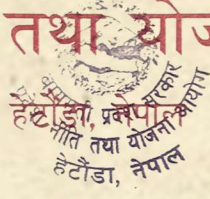 तथा योज
हेटौंडा, नेपाल
प्रदेश सरकार
नीति तथा योजना आयोग
हेटौंडा, नेपाल